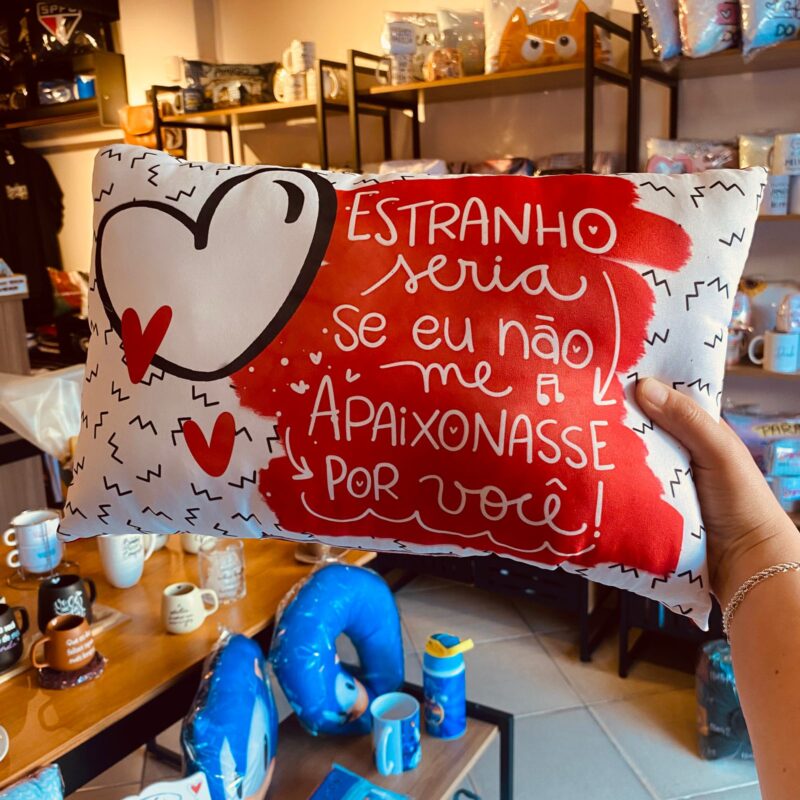 ESTRANHO
seria
se eu não
me
APAIXONASSE
POR você!
SPFC